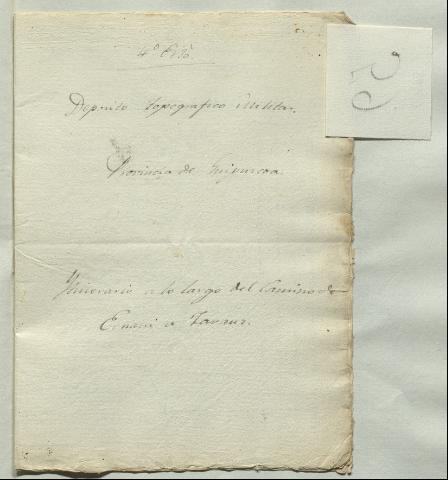 4º Exto
Deposito topografico Militar.
Provincia de Guipuzcoa.
Ytinerario a lo largo del Camino de
Ernani a Zarauz.